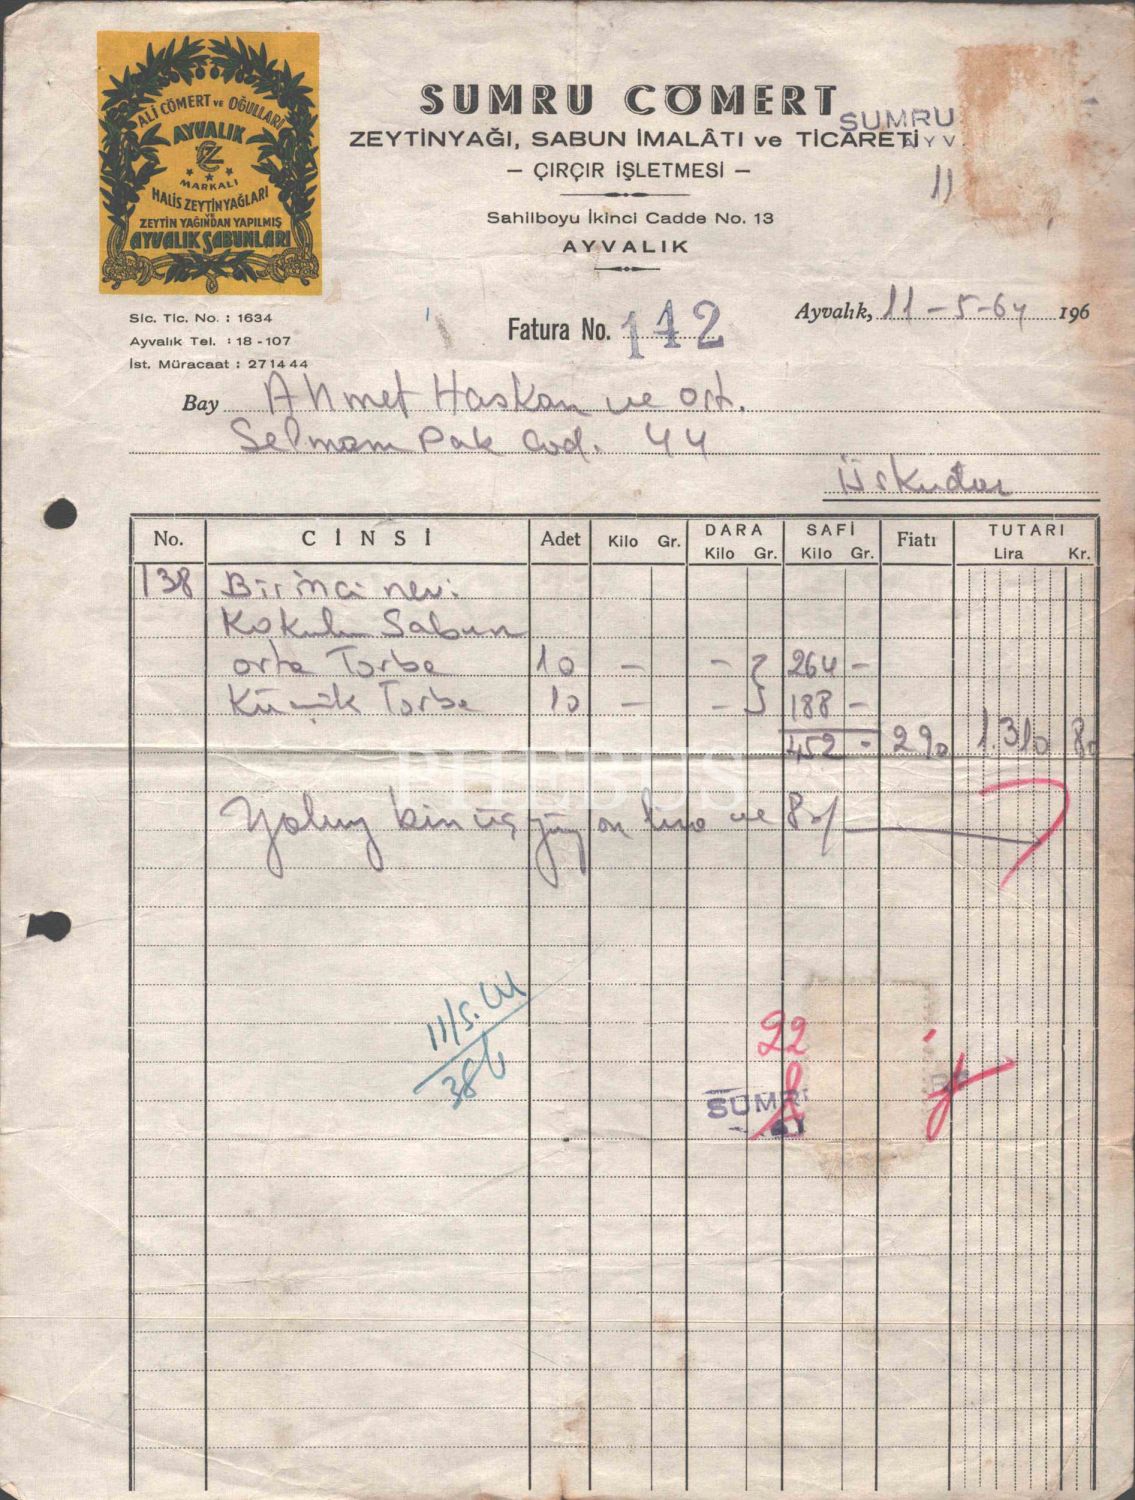 ALİ CÖMERT VE OĞULLARI
AYVALIK
MARKALI
HALİS ZEYTİNYAĞLARI
VE
ZEYTİN YAĞINDAN YAPILMIŞ
AYVALIK SABUNLARI
SUMRU CÖMERT
ZEYTİNYAĞI, SABUN İMALÂTI ve TİCARETİ
— ÇIRÇIR İŞLETMESİ —
Sahilboyu İkinci Cadde No. 13
AYVALIK
SUMRU
AYV
11
Sic. Tic. No. : 1634
Ayvalık Tel. : 18 - 107
İst. Müracaat : 271444
Fatura No. 112
Ayvalık, 11-5-64 196
Bay Ahmet Haskan ve ort.
Selmanı Pak Cad. 44
Üsküdar
No. CİNSİ Adet Kilo Gr. DARA Kilo Gr. SAFİ Kilo Gr. Fiatı TUTARI Lira Kr.
138 Birinci nevi
Kokulu Sabun
orta Torba 10 — — 264 —
Küçük Torba 10 — — 188 —
452 - 290 1.310 80
PHEBUS
Yalnız bin üç yüz on lira ve 80/
11/5.64
386
22
SUMRU